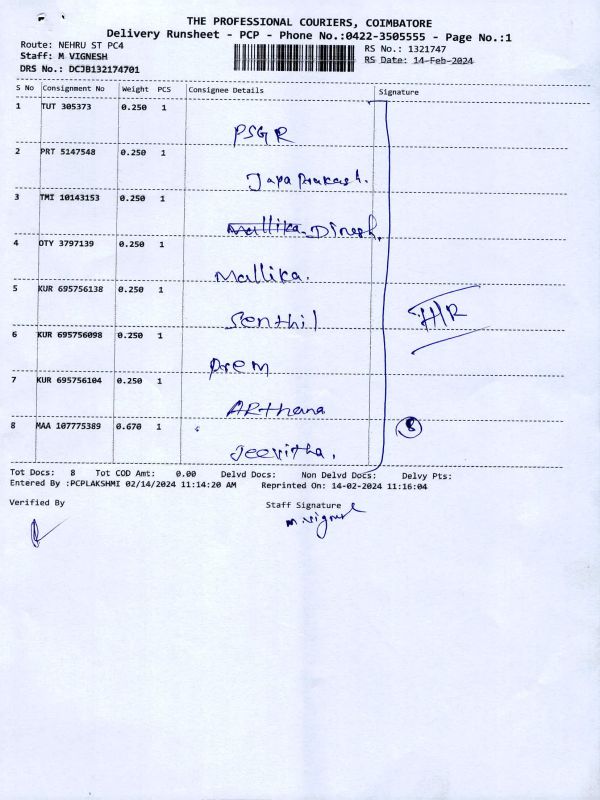 THE PROFESSIONAL COURIERS, COIMBATORE
Delivery Runsheet - PCP - Phone No.:0422-3505555 - Page No.:1
Route: NEHRU ST PC4
RS No.: 1321747
Staff: M VIGNESH
RS Date: 14-Feb-2024
DRS No.: DCJB132174701
S No Consignment No Weight PCS Consignee Details Signature
1 TUT 305373 0.250 1
PSGR
2 PRT 5147548 0.250 1
Jaya Prakash.
3 TMI 10143153 0.250 1
Mallika. Dinesh.
4 OTY 3797139 0.250 1
Mallika.
5 KUR 695756138 0.250 1
Senthil
H/R
6 KUR 695756098 0.250 1
Prem
7 KUR 695756104 0.250 1
ARthana
8 MAA 107775389 0.670 1
8
Jeevitha.
Tot Docs: 8 Tot COD Amt: 0.00 Delvd Docs: Non Delvd Docs: Delvy Pts:
Entered By :PCPLAKSHMI 02/14/2024 11:14:20 AM Reprinted On: 14-02-2024 11:16:04
Verified By
Staff Signature
M. Vignesh